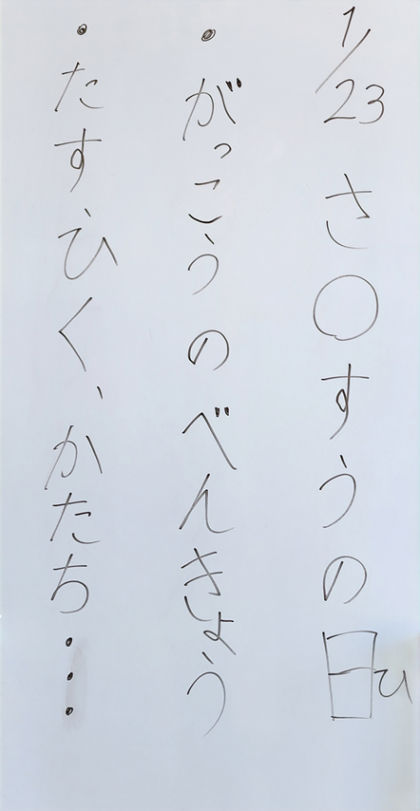 1/23 さ〇すうの日ひ
・がっこうのべんきょう
・たす、ひく、かたち…